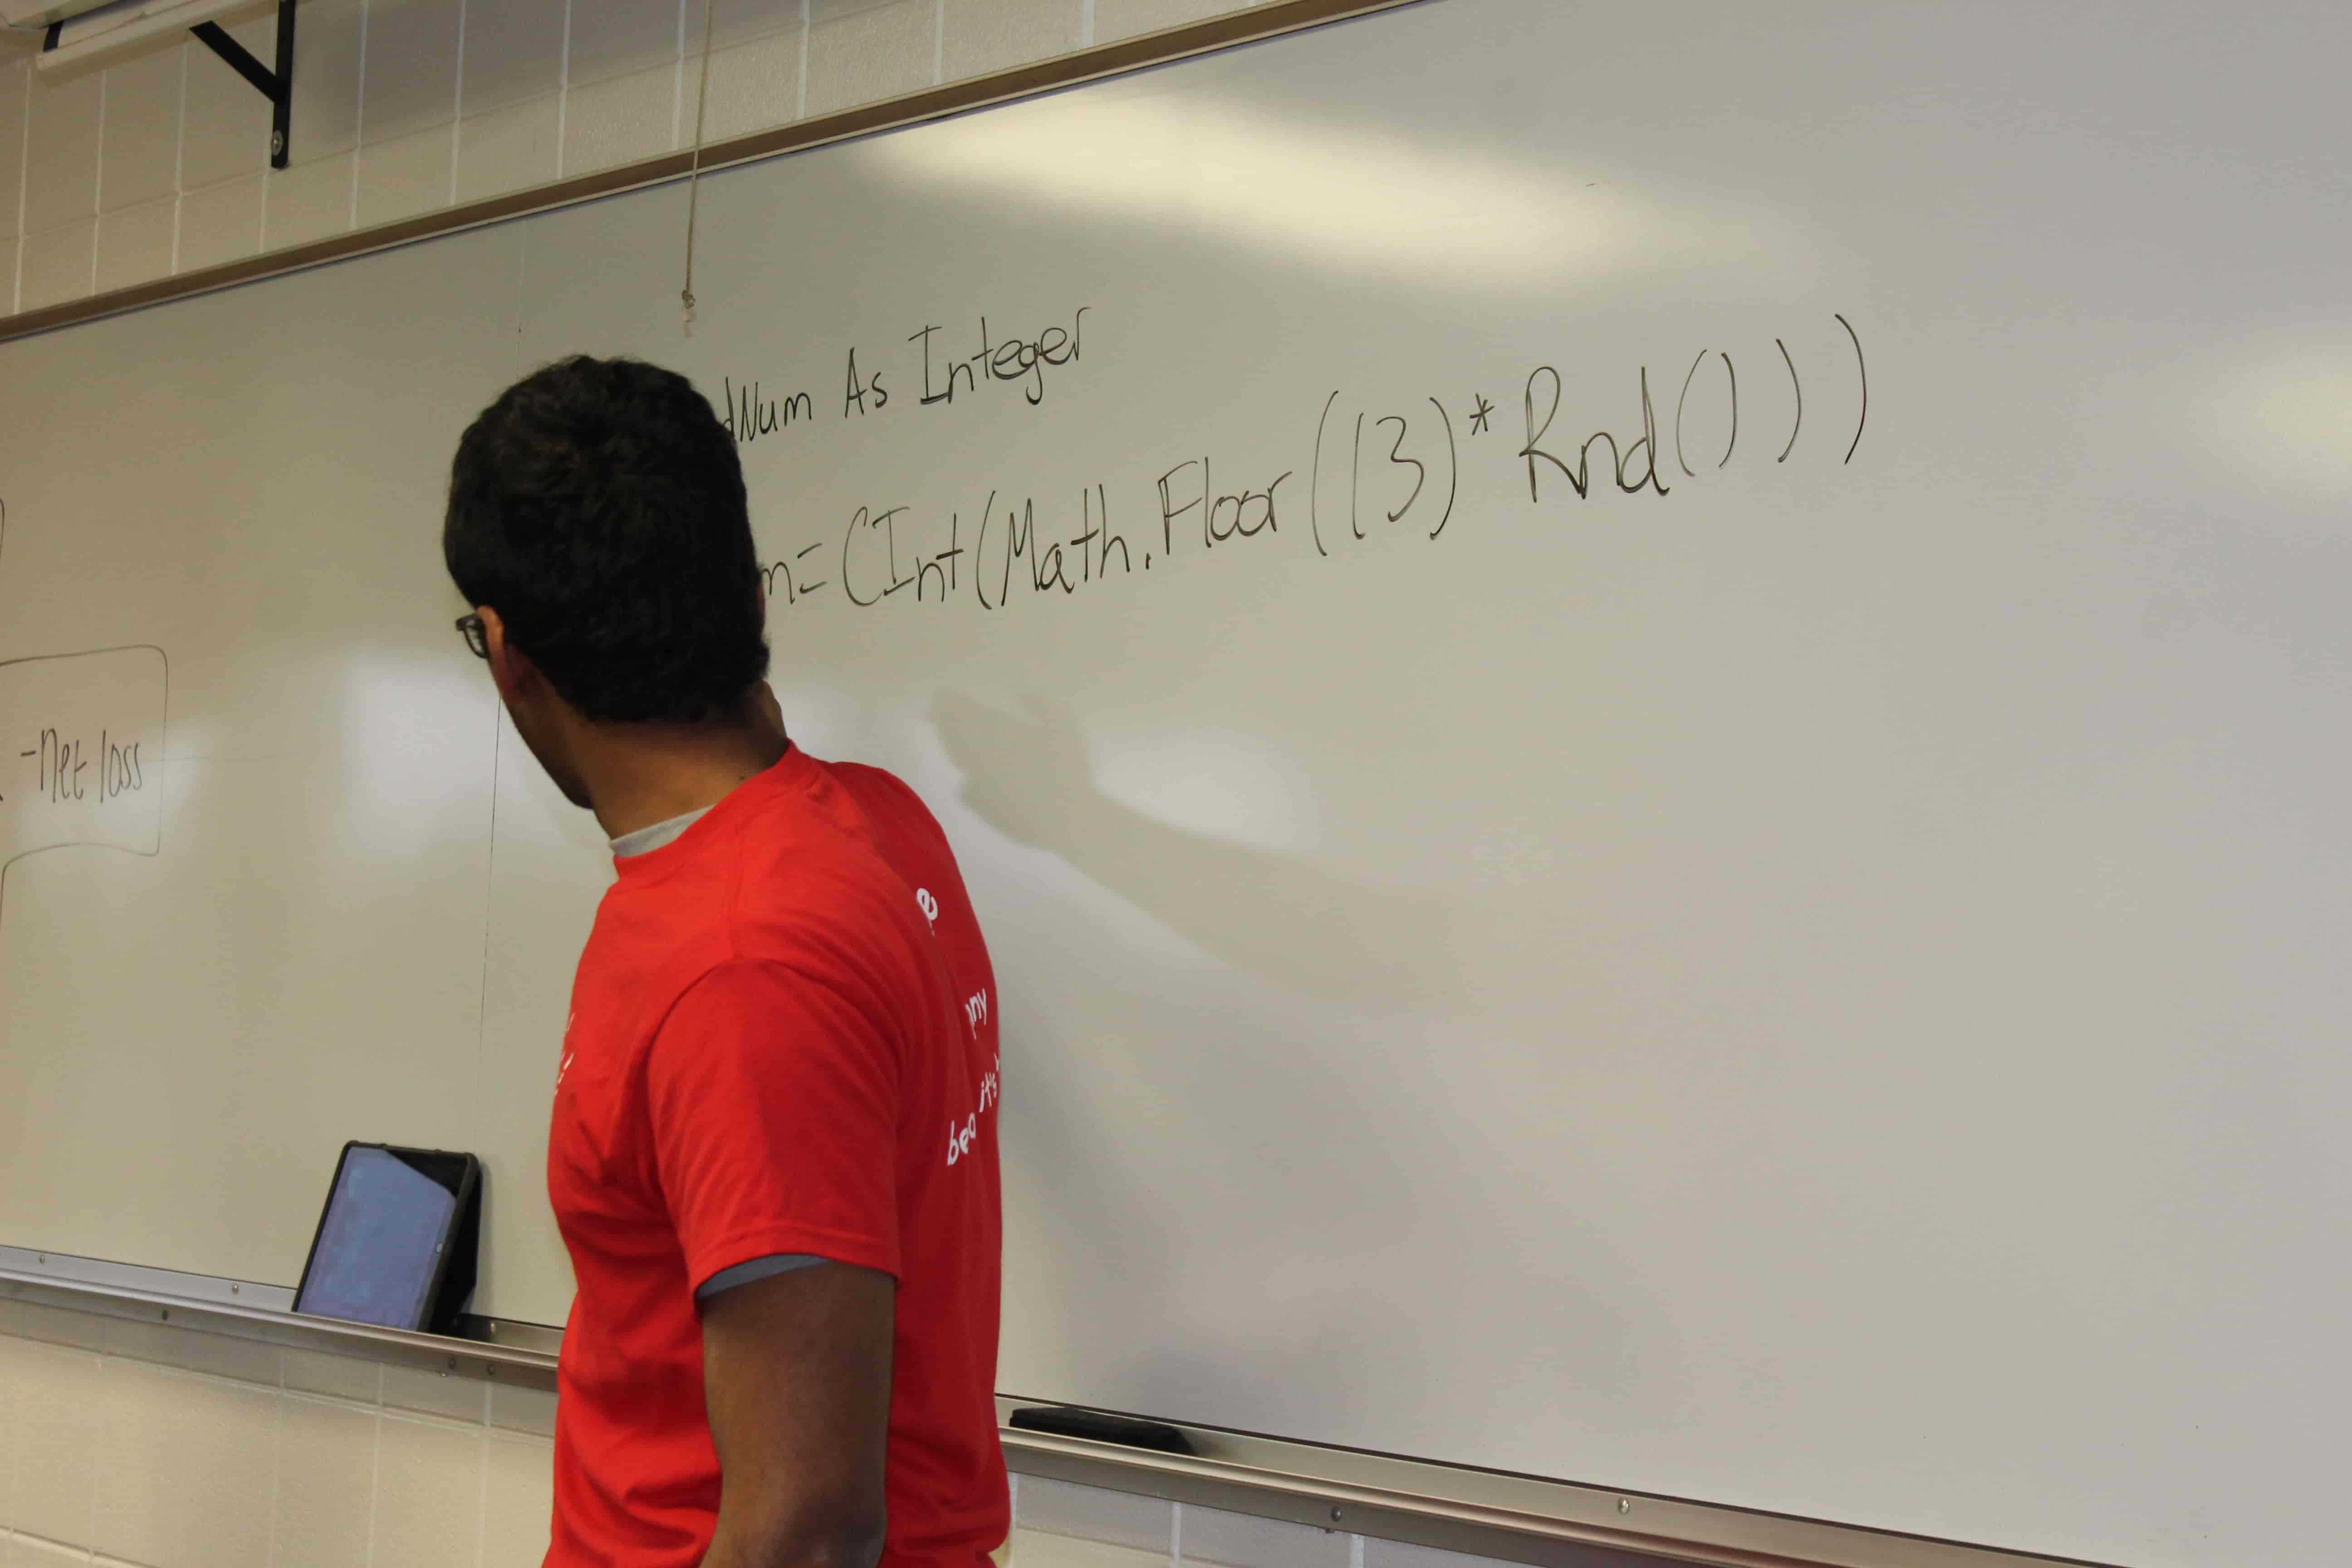 dNum As Integer
m= CInt(Math.Floor((3)*Rnd()))
-net loss
e
any
it's
bea